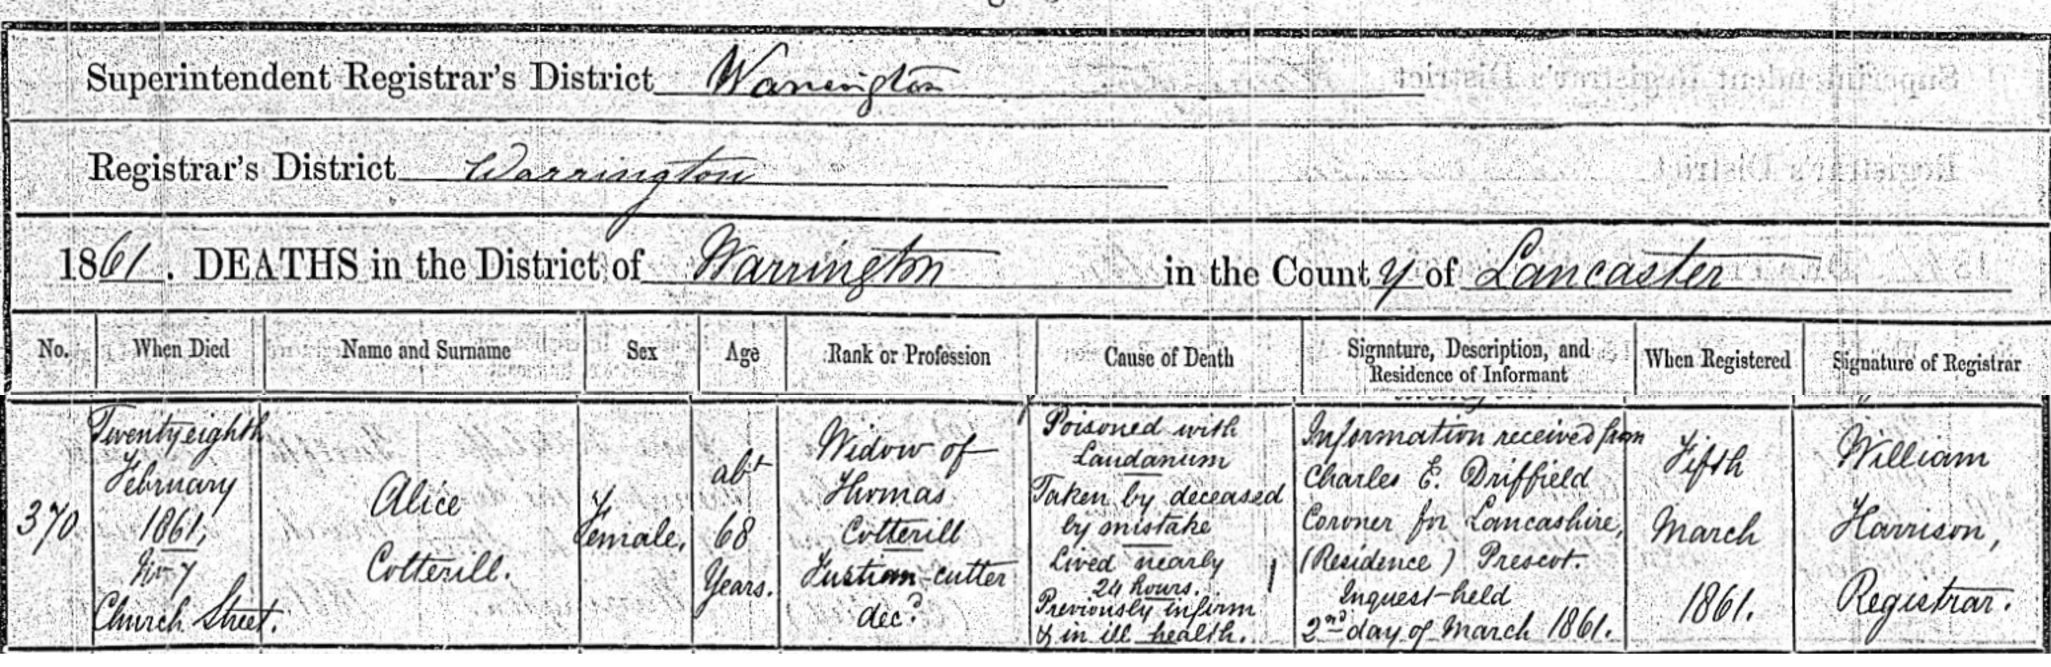 Superintendent Registrar's District Warrington
Registrar's District Warrington
1861. DEATHS in the District of Warrington in the County of Lancaster
No.
When Died
Name and Surname
Sex
Age
Rank or Profession
Cause of Death
Signature, Description, and
Residence of Informant
When Registered
Signature of Registrar
370
Twenty eighth
February
1861,
No 7
Church Street.
Alice
Cotterill.
Female.
abt
68
Years.
Widow of
Thomas
Cotterill
Fustian-cutter
decd.
Poisoned with
Laudanum
Taken by deceased
by mistake
Lived nearly
24 hours.
Previously infirm
& in ill health.
Information received from
Charles E. Driffield
Coroner for Lancashire,
(Residence) Prescot.
Inquest held
2nd day of March 1861.
Fifth
March
1861.
William
Harrison,
Registrar.